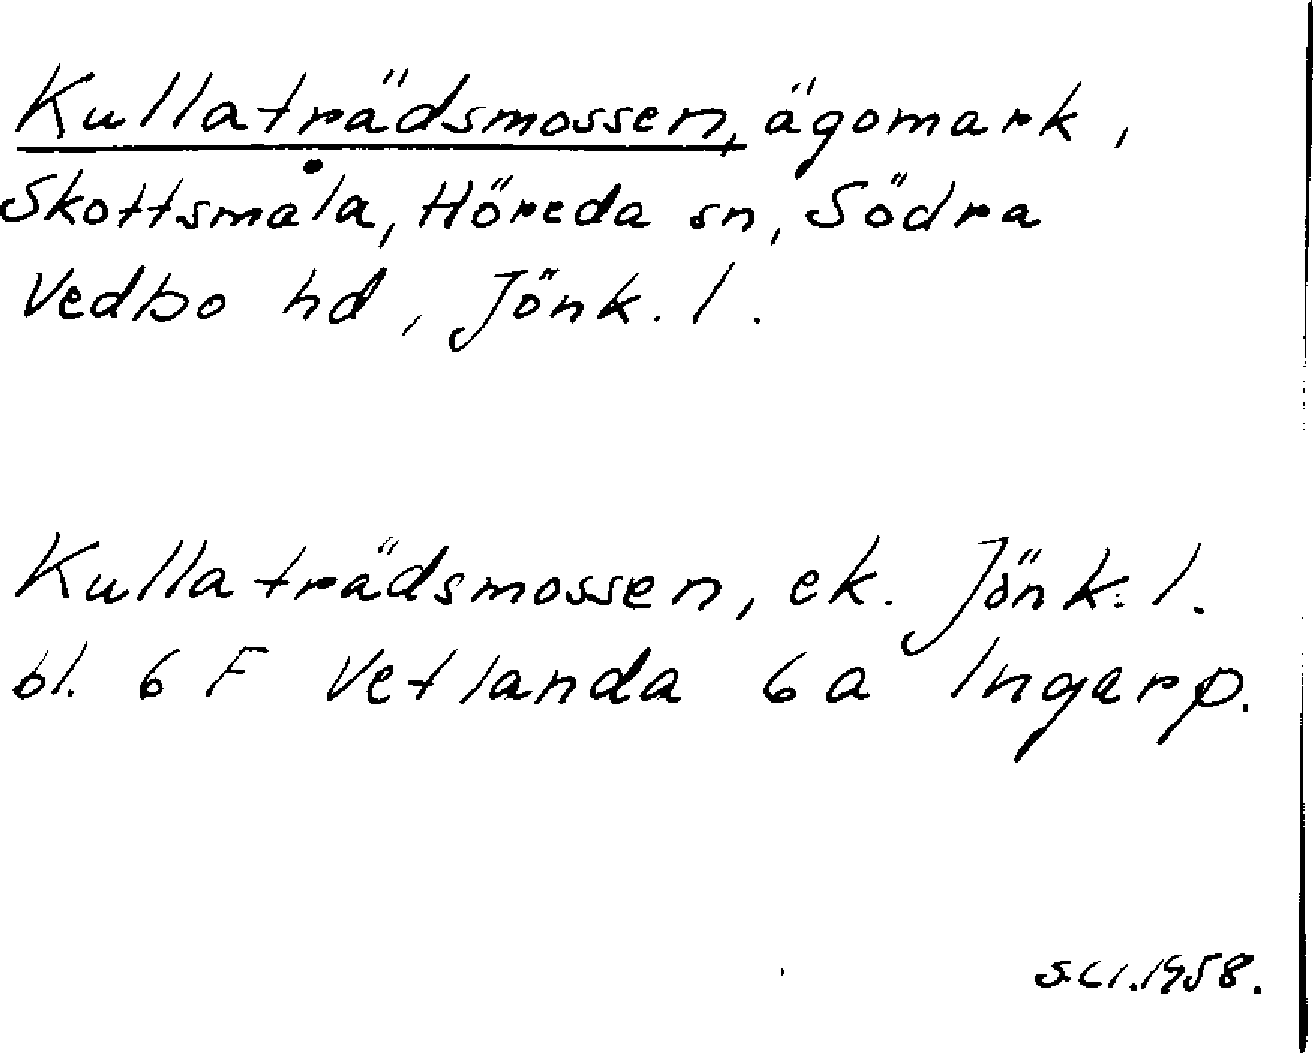 Kullaträdsmossen, ägomark,
Skottsmåla, Höreda sn, Södra
Vedbo hd, Jönk. l.
Kullaträdsmossen, ek. Jönk. l.
bl. 6 F Vetlanda 6a Ingarp.
1958.